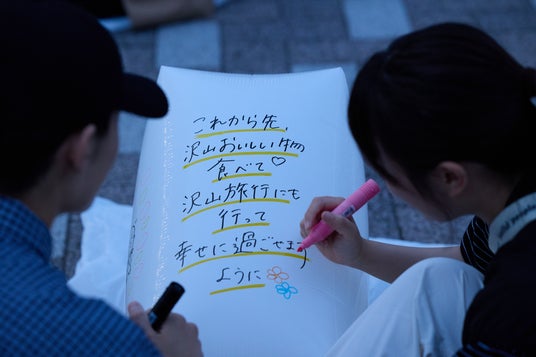 これから先、
沢山おいしい物
食べて♡
沢山旅行にも
行って
幸せに過ごせます
ように